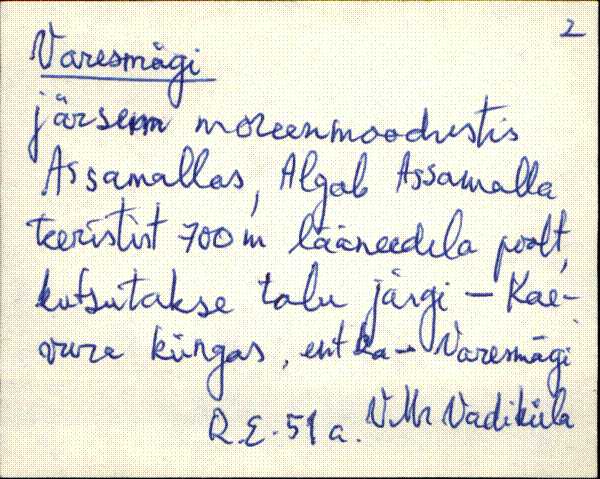 2
Varesmägi
järsem moreenmoodustis
Assamallas, Algab Assamalla
teeristist 700 m lääneedela poolt,
kutsutakse talu järgi – Kae-
vura küngas, ent ka – Varesmägi
R.E. 51 a. VMr Vadiküla